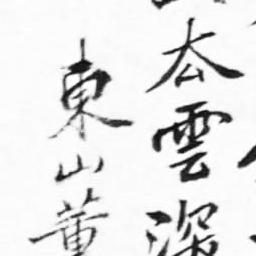 厺雲深
東山董